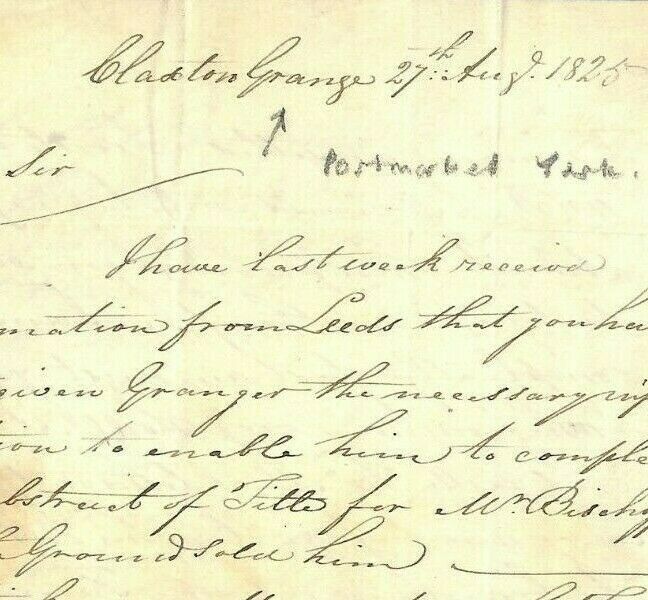 Claxton Grange 27th Augt. 1825
Postmarked York.
Sir
I have last week receivd
mation from Leeds that you ha
given Granger the necessary inf
tion to enable him to comple
bstract of Title for Mr. Bischof
Ground sold him